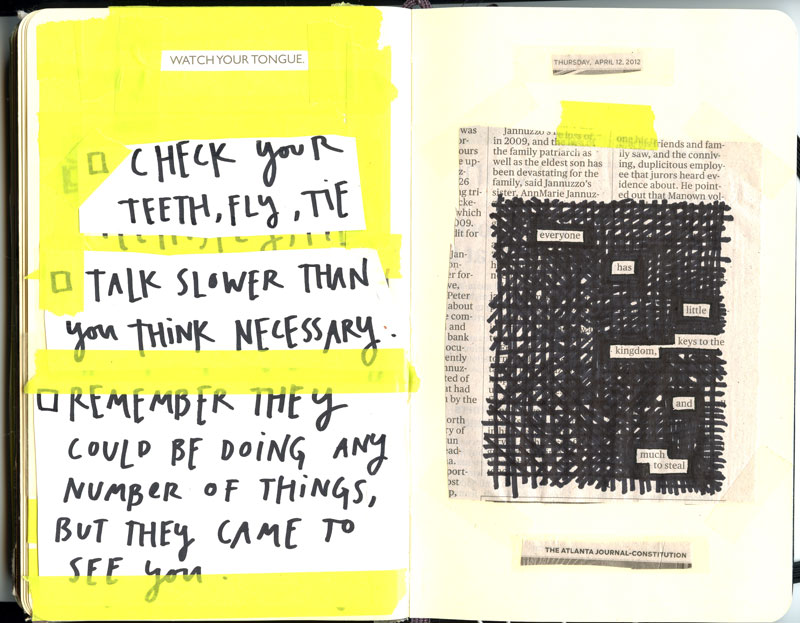 WATCH YOUR TONGUE.
CHECK YOUR
TEETH, FLY, TIE
TALK SLOWER THAN
YOU THINK NECESSARY.
REMEMBER THEY
COULD BE DOING ANY
NUMBER OF THINGS,
BUT THEY CAME TO
SEE YOU.
THURSDAY, APRIL 12, 2012
was
or-
ours
e up-
26
ng tri-
cke-
which
009.
dit for
Jan-
on-
er for-
ve,
Peter
about
e com-
and
bank
ocu-
ently
nnuz-
ted of
t had
n by the
orth
ry of
un
ead-
a.
port-
ost
p,
Jannuzzo's
in 2009, and the
the family patriarch as
well as the eldest son has
been devastating for the
family, said Jannuzzo's
sister, AnnMarie Jannuz-
friends and fam-
ily saw, and the conniv-
ing, duplicitous employ-
ee that jurors heard ev-
idence about. He point-
ed out that Manown vol-
everyone
has
little
keys to the
kingdom,
and
much
to steal
THE ATLANTA JOURNAL-CONSTITUTION